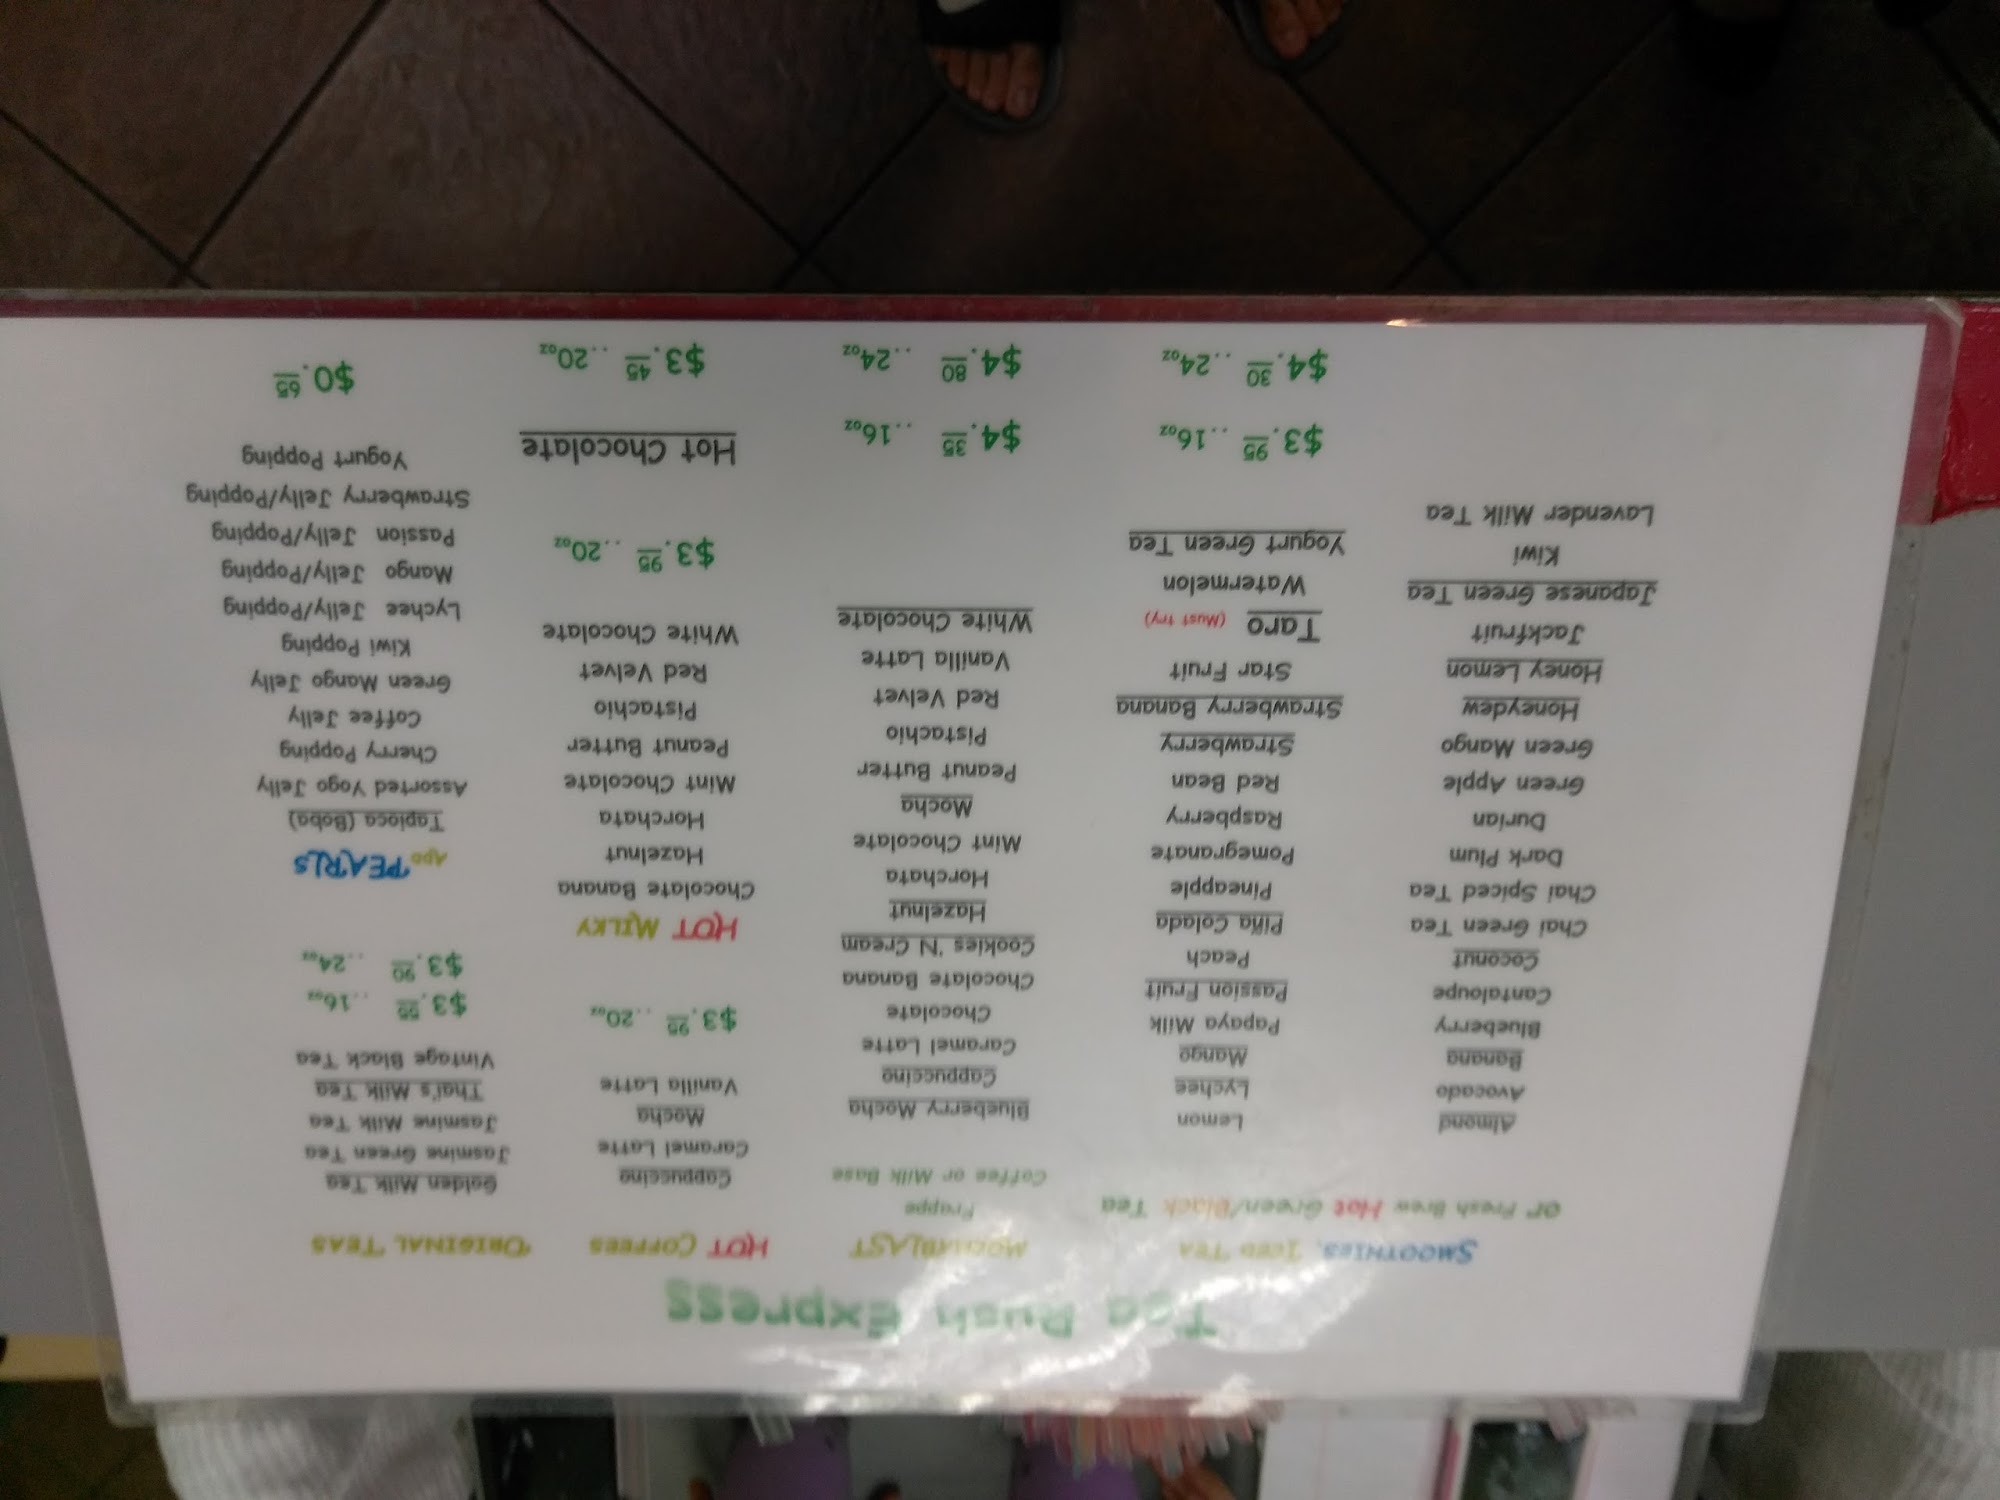 Tea Rush Express
SMOOTHIES, ICED TEA
or Fresh Brew Hot Green/Black Tea
Almond
Avocado
Banana
Blueberry
Cantaloupe
Coconut
Chai Green Tea
Chai Spiced Tea
Dark Plum
Durian
Green Apple
Green Mango
Honeydew
Honey Lemon
Jackfruit
Japanese Green Tea
Kiwi
Lavender Milk Tea
Lemon
Lychee
Mango
Papaya Milk
Passion Fruit
Peach
Piña Colada
Pineapple
Pomegranate
Raspberry
Red Bean
Strawberry
Strawberry Banana
Star Fruit
Taro (Must try)
Watermelon
Yogurt Green Tea
$3.95 ..16oz
$4.30 ..24oz
MOCHABLAST
Frappe
Coffee or Milk Base
Blueberry Mocha
Cappuccino
Caramel Latte
Chocolate
Chocolate Banana
Cookies 'N Cream
Hazelnut
Horchata
Mint Chocolate
Mocha
Peanut Butter
Pistachio
Red Velvet
Vanilla Latte
White Chocolate
$4.35 ..16oz
$4.80 ..24oz
HOT COFFEES
Cappuccino
Caramel Latte
Mocha
Vanilla Latte
$3.95 ..20oz
HOT MILKY
Chocolate Banana
Hazelnut
Horchata
Mint Chocolate
Peanut Butter
Pistachio
Red Velvet
White Chocolate
$3.95 ..20oz
Hot Chocolate
$3.45 ..20oz
ORIGINAL TEAS
Golden Milk Tea
Jasmine Green Tea
Jasmine Milk Tea
Thai's Milk Tea
Vintage Black Tea
$3.55 ..16oz
$3.90 ..24oz
ADD PEARLS
Tapioca (Boba)
Assorted Yogo Jelly
Cherry Popping
Coffee Jelly
Green Mango Jelly
Kiwi Popping
Lychee Jelly/Popping
Mango Jelly/Popping
Passion Jelly/Popping
Strawberry Jelly/Popping
Yogurt Popping
$0.65